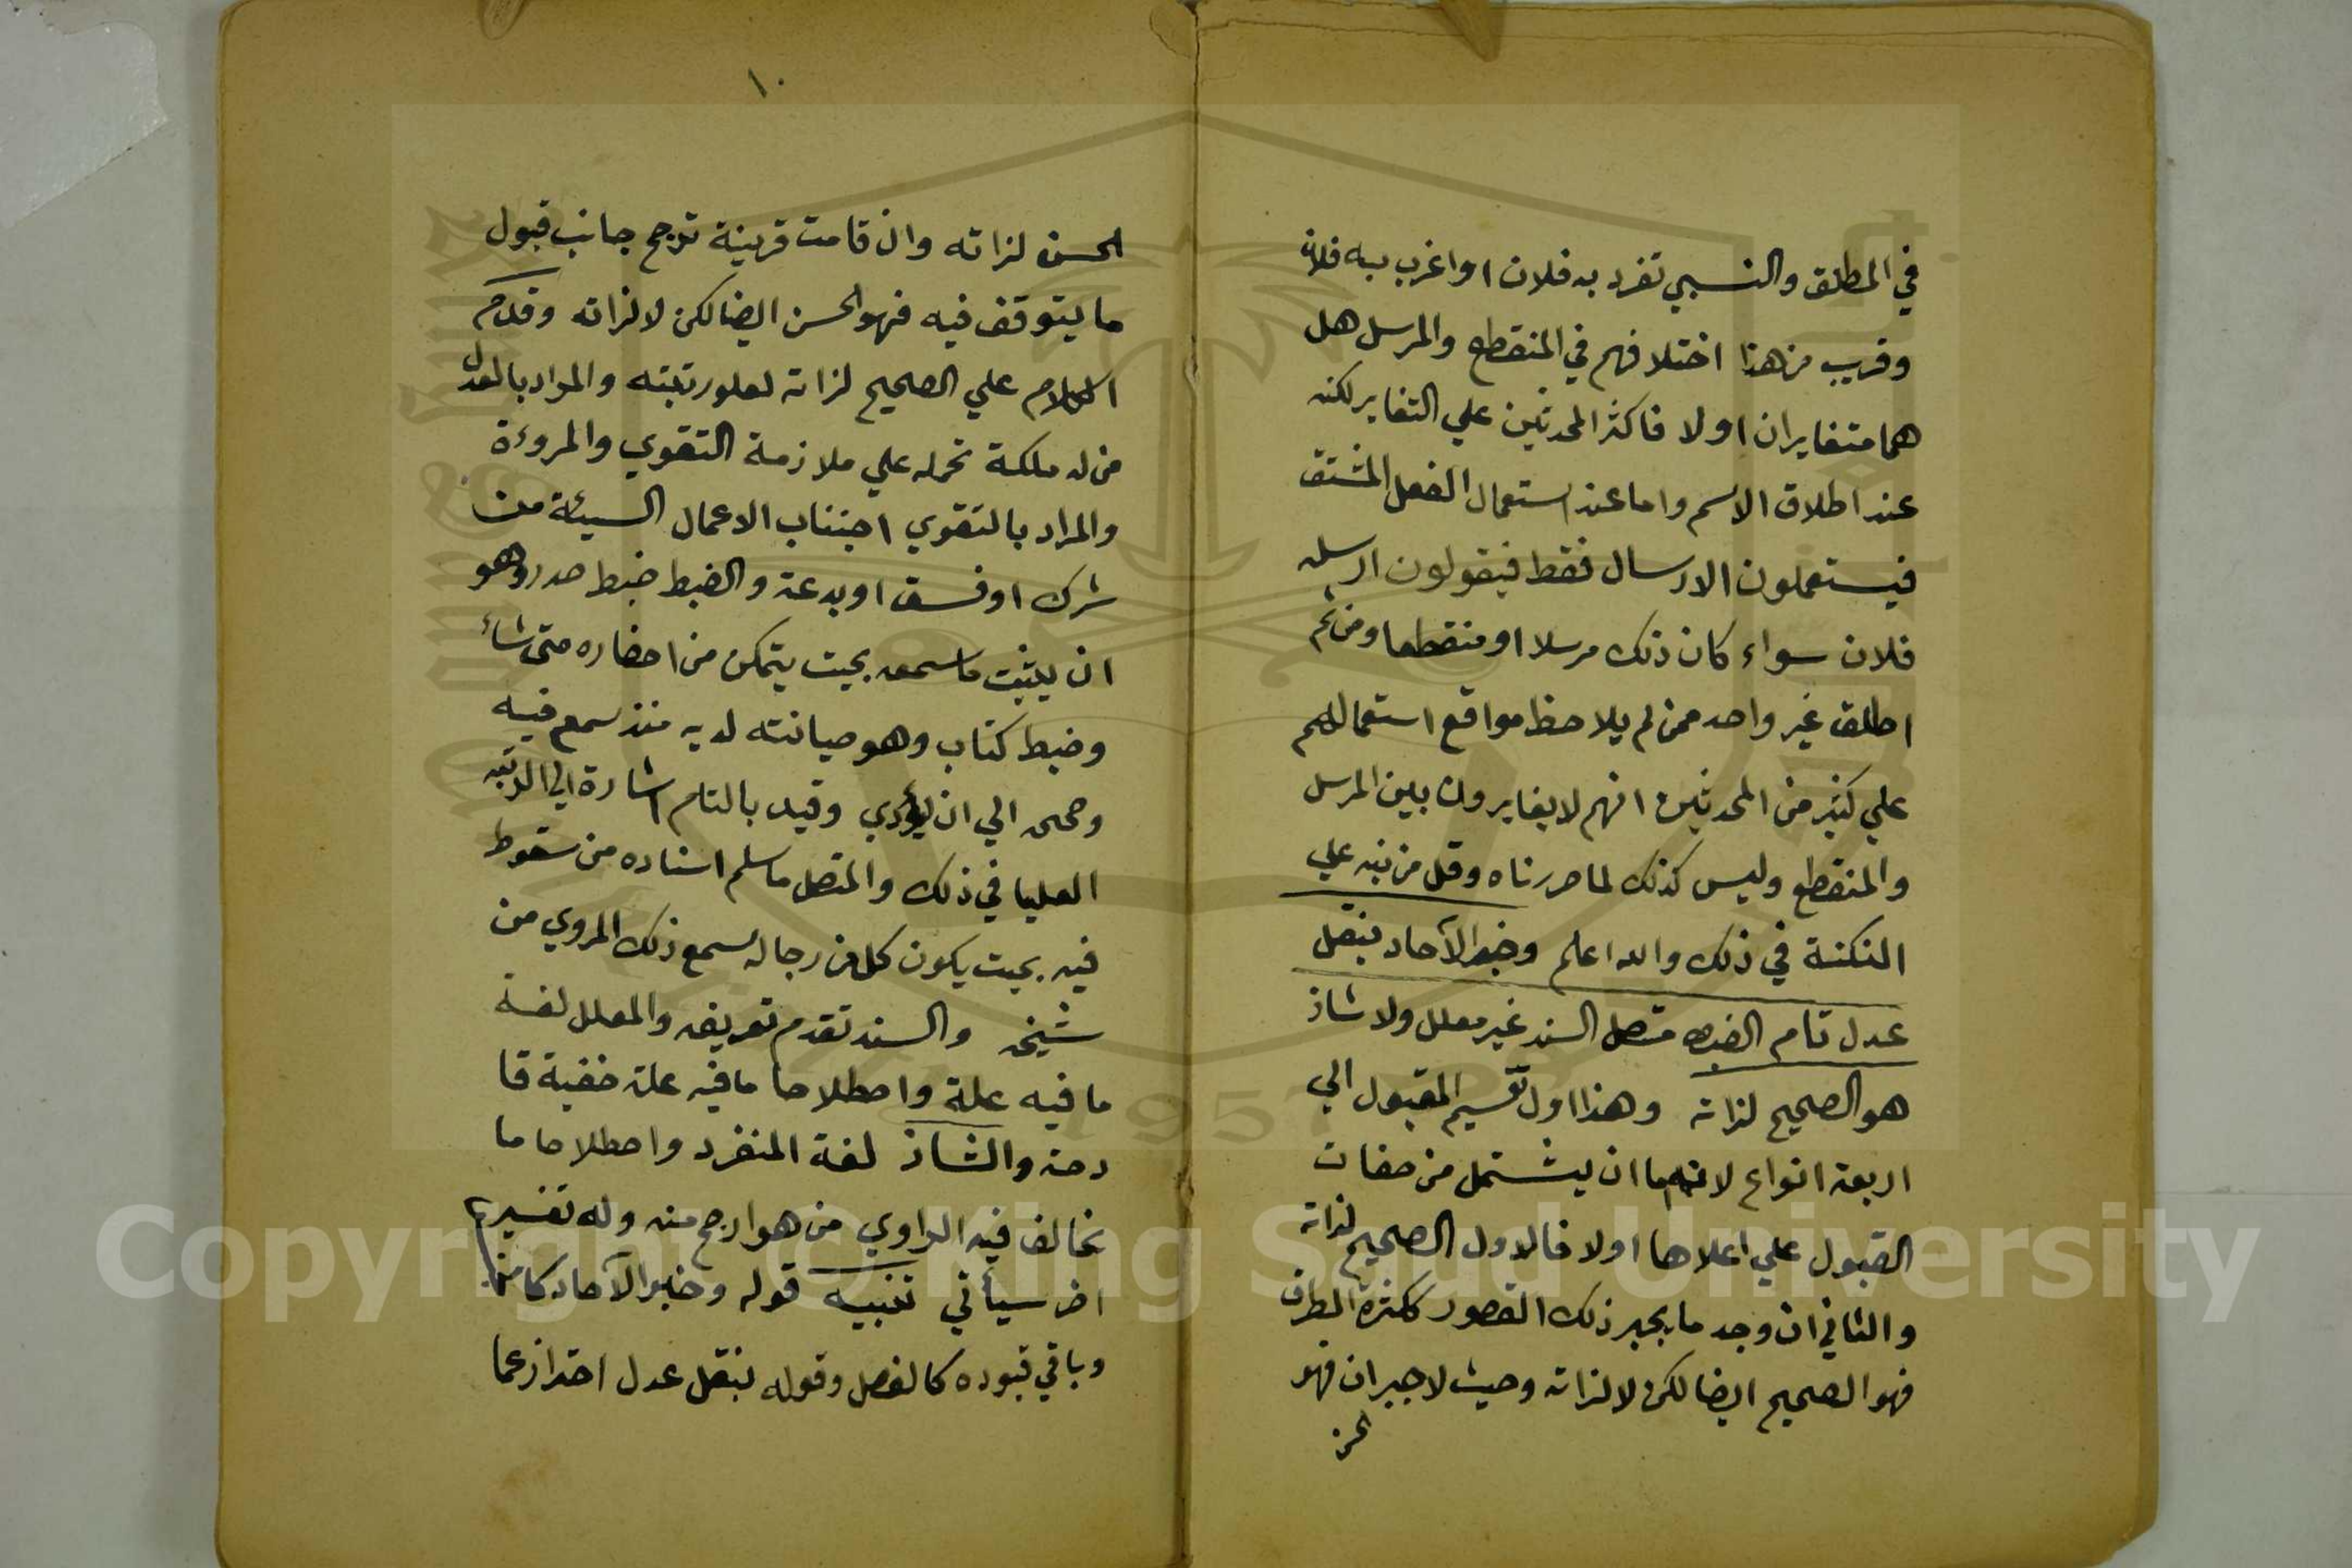 في المطلق والنسبي تفرد به فلان او اغرب به فلان
وقريب من هذا اختلافهم في المنقطع والمرسل هل
هما متغايران اولا فاكثر المحدثين علي التغاير لكنه
عند اطلاق الاسم واما عند استعمال الفعل المشتق
فيستعملون الارسال فقط فيقولون ارسله
فلان سواء كان ذلك مرسلا او منقطعا ومن ثم
اطلق غير واحد ممن لم يلاحظ مواقع استعمالهم
علي كثير من المحدثين انهم لا يغايرون بين المرسل
والمنقطع وليس كذلك لما حررناه وقل من نبه علي
النكتة في ذلك والله اعلم وخبر الآحاد بنقل
عدل تام الضبط متصل السند غير معلل ولا شاذ
هو الصحيح لذاته وهذا اول تقسيم المقبول الي
اربعة انواع لانه اما ان يشتمل من صفات
القبول علي اعلاها اولا فالاول الصحيح لذاته
والثاني ان وجد ما يجبر ذلك القصور ككثرة الطرق
فهو الصحيح ايضا لكن لا لذاته وحيث لا جبران فهو
الحسن
١٠
الحسن لذاته وان قامت قرينة ترجح جانب قبول
ما يتوقف فيه فهو الحسن ايضا لكن لا لذاته وقدم
الكلام علي الصحيح لذاته لعلو رتبته والمراد بالعدل
من له ملكة تحمله علي ملازمة التقوي والمروءة
والمراد بالتقوي اجتناب الاعمال السيئة من
شرك او فسق او بدعة والضبط ضبط صدر وهو
ان يثبت ما سمعه بحيث يتمكن من احضاره متى شاء
وضبط كتاب وهو صيانته لديه منذ سمع فيه
وصححه الي ان يؤدي وقيد بالتام اشارة الي الرتبة
العليا في ذلك والمتصل ما سلم اسناده من سقوط
فيه بحيث يكون كل من رجاله سمع ذلك المروي من
شيخه والسند تقدم تعريفه والمعلل لغة
ما فيه علة واصطلاحا ما فيه علة خفية قا
دحة والشاذ لغة المنفرد واصطلاحا ما
يخالف فيه الراوي من هو ارجح منه وله تفسير
اخر سيأتي تنبيه قوله وخبر الآحاد كالجنس
وباقي قيوده كالفصل وقوله بنقل عدل احتراز عما
Copyright © King Saud University
1957